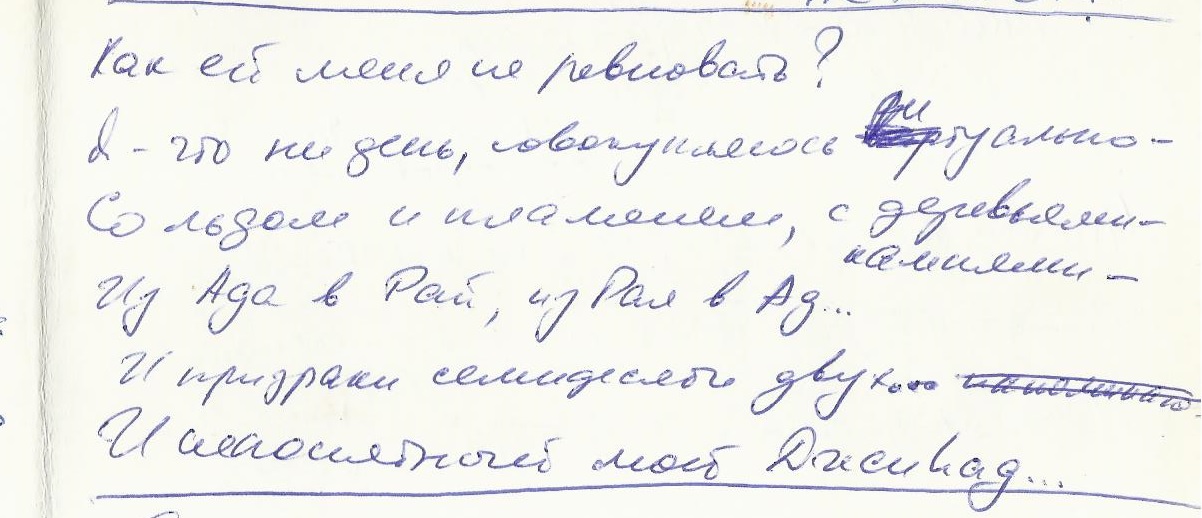 Как ей меня не ревновать?
Я - что ни день, совокупляюсь виртуально -
Со льдом и пламенем, с деревьями -
камнями -
Из Ада в Рай, из Рая в Ад...
И призраки семидесяти двух...
И непонятный мой Джихад...